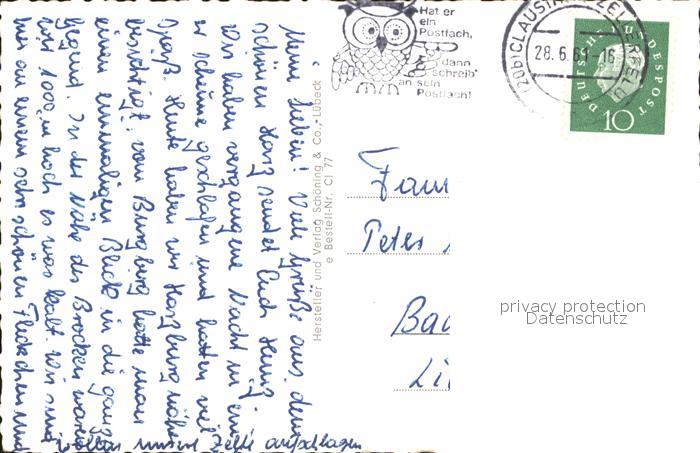 Meine Lieben! Viele Grüße aus dem
schönen Harz sendet Euch Heinz.
Wir haben vergangene Nacht in ein
er Scheune geschlafen und hatten viel
Spaß. Heute haben wir Harzburg näher
besichtigt. Vom Burgberg hatte man
einen einmaligen Blick in die ganze
Gegend. In der Nähe des Brocken waren
wir 1000 m hoch es war kalt. Wir sind
hier an einem sehr schönen Fleckchen und
wollen unsere Zelte aufschlagen
Hersteller und Verlag Schöning & Co., Lübeck
e Bestell-Nr. Cl 77
Hat er
ein
Postfach,
dann
schreib'
an sein
Postfach!
(20b) CLAUSTHAL-ZELLERFELD
28.6.61-16
DEUTSCHE BUNDESPOST
10
Fam
Peter
Bad
Li
privacy protection
Datenschutz